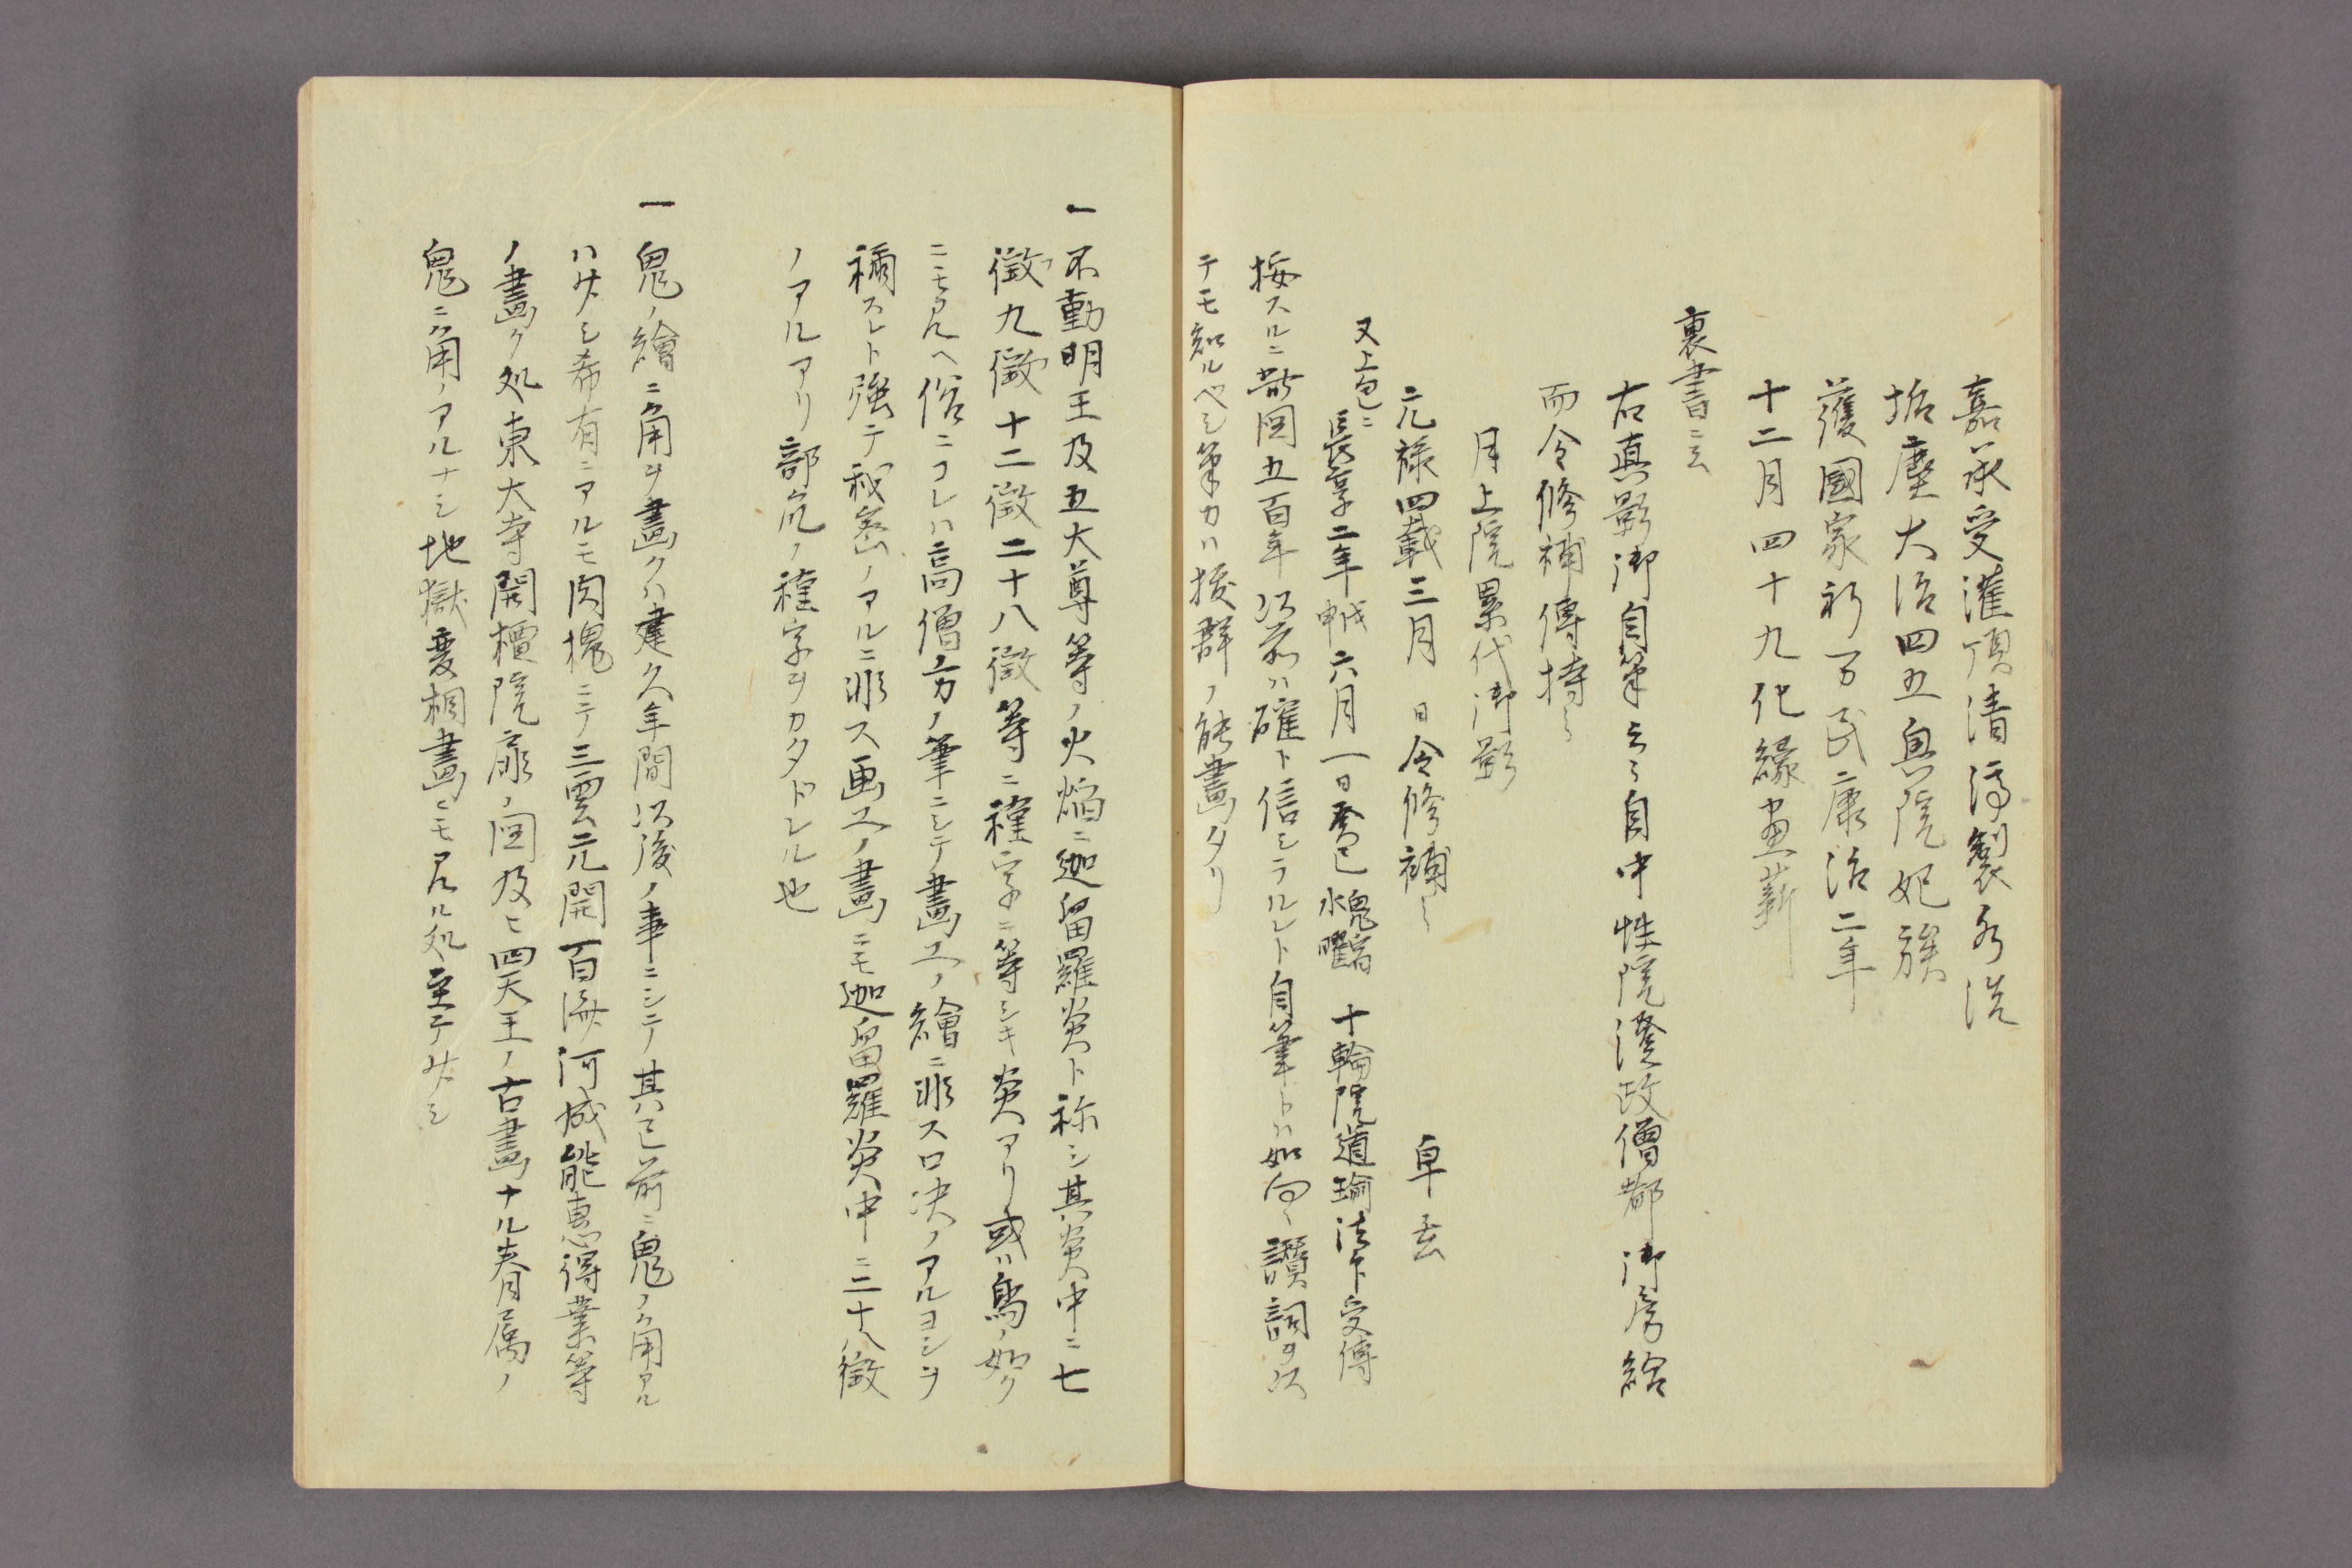 嘉承受灌頂清涛製多洗
垢塵大治四五魚院妃族
護國家祈万民康治二年
十二月四十九化縁尽薪
裏書ニ云
右真影御自筆云々自中性院澄政僧都御房給
而令修補傳持之
月上院累代御影
元禄四載三月 日令修補之 卓玄
又上包ニ 長享二年戊申六月一日癸巳水曜鬼宿 十輪院道瑜法下受傳
按スルニ此図五百年以前ハ確ト信シラルレト自筆トハ如何讃詞ヲ以
テモ知ルベシ筆力ハ抜群ノ能畫タリ
一 不動明王及五大尊等ノ火焔ニ迦留羅炎ト称シ其炎中ニ七
徴九徴十二徴二十八徴等ニ種字ニ等シキ炎アリ或ハ鳥ノ如ク
ニモアルヘ俗ニコレハ高僧方ノ筆ニシテ畫工ノ繪ニ非ス口决ノアルヨシヲ
稱スレト強テ秘密ノアルニ非ス画工ノ畫ニモ迦留羅炎中ニ二十八徴
ノアルアリ部究ノ種字ヲカタドレル也
一 鬼ノ繪ニ角ヲ畫クハ建久年間以後ノ事ニシテ其已前ニ鬼ノ角アル
ハナシ希有ニアルモ肉塊ニテ三雲元開百済ノ河成能恵得業等
ノ畫ク処東大寺開檀院扉ノ図及ヒ四天王ノ古畫ナル夫眷属ノ
鬼ニ角ノアルナシ地獄変相畫ニモアル処至テナシ